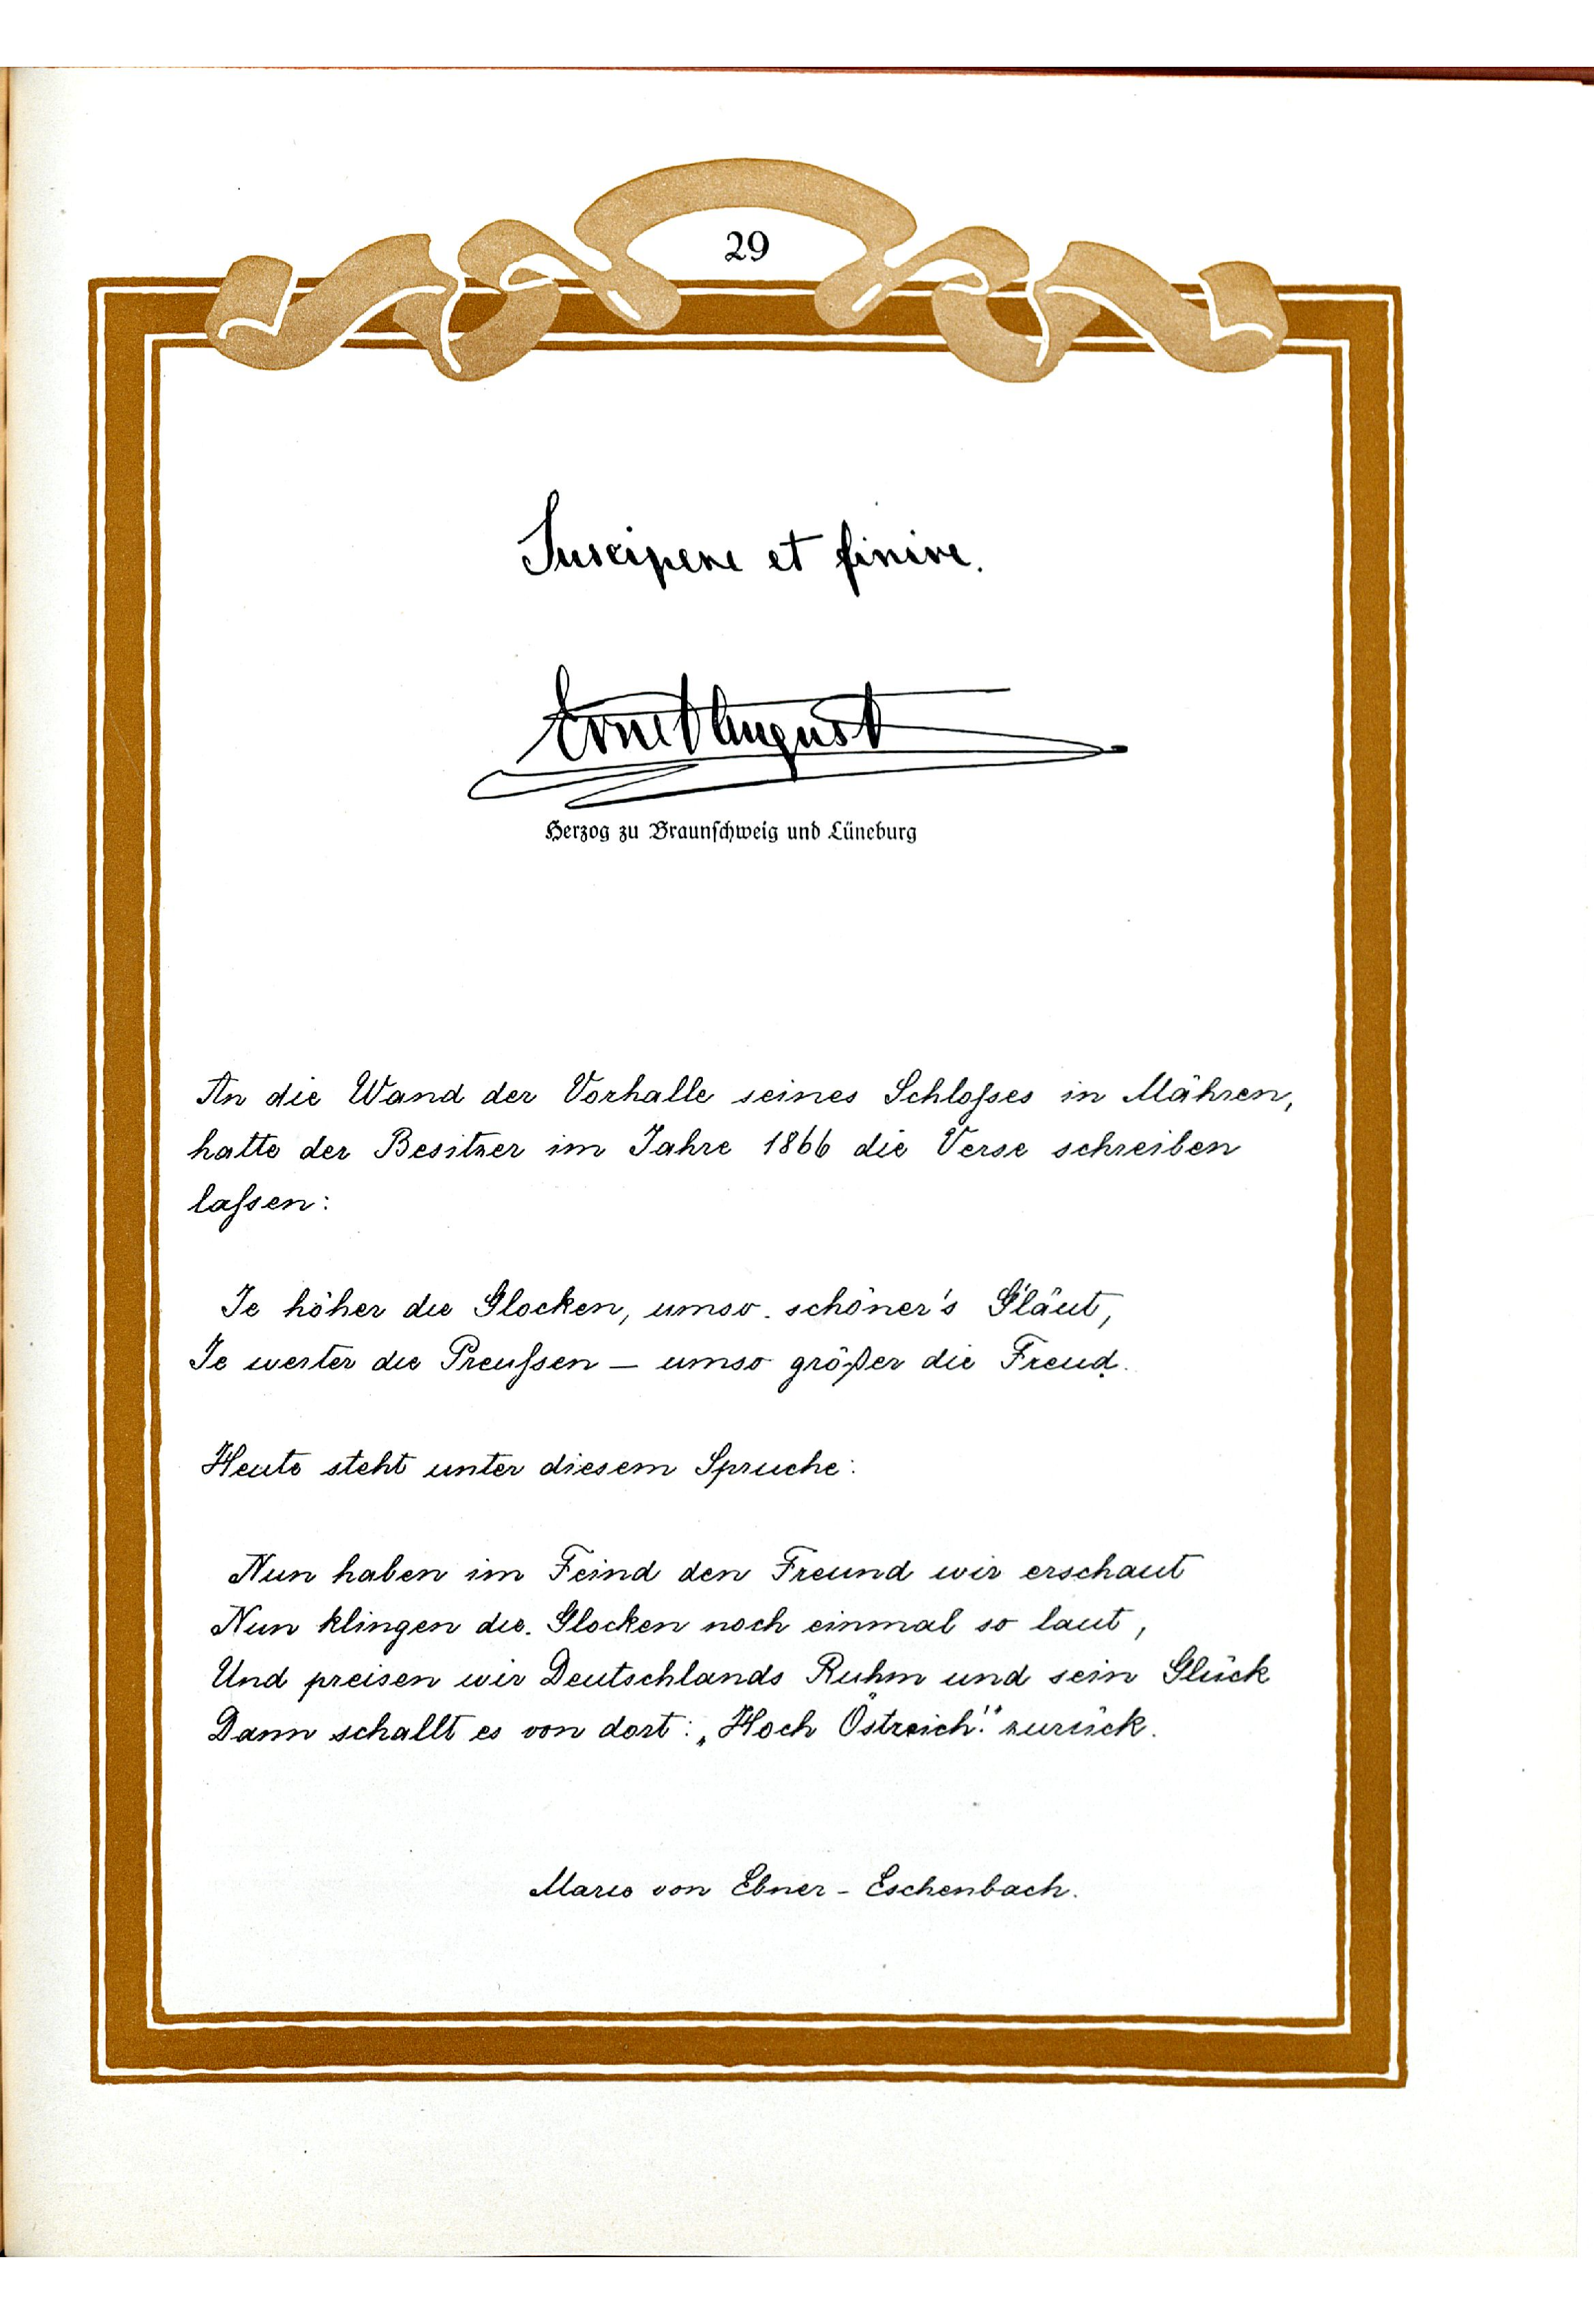 29
Suscipere et finire.
Ernst August
Herzog zu Braunschweig und Lüneburg
An die Wand der Vorhalle seines Schloſses in Mähren,
hatte der Besitzer im Jahre 1866 die Verse schreiben
laſsen:
Je höher die Glocken, umso schöner's G'läut,
Je weiter die Preuſsen – umso größer die Freud.
Heute steht unter diesem Spruche:
Nun haben im Feind den Freund wir erschaut
Nun klingen die Glocken noch einmal so laut,
Und preisen wir Deutschlands Ruhm und sein Glück
Dann schallt es von dort: „Hoch Östreich!“ zurück.
Marie von Ebner-Eschenbach.